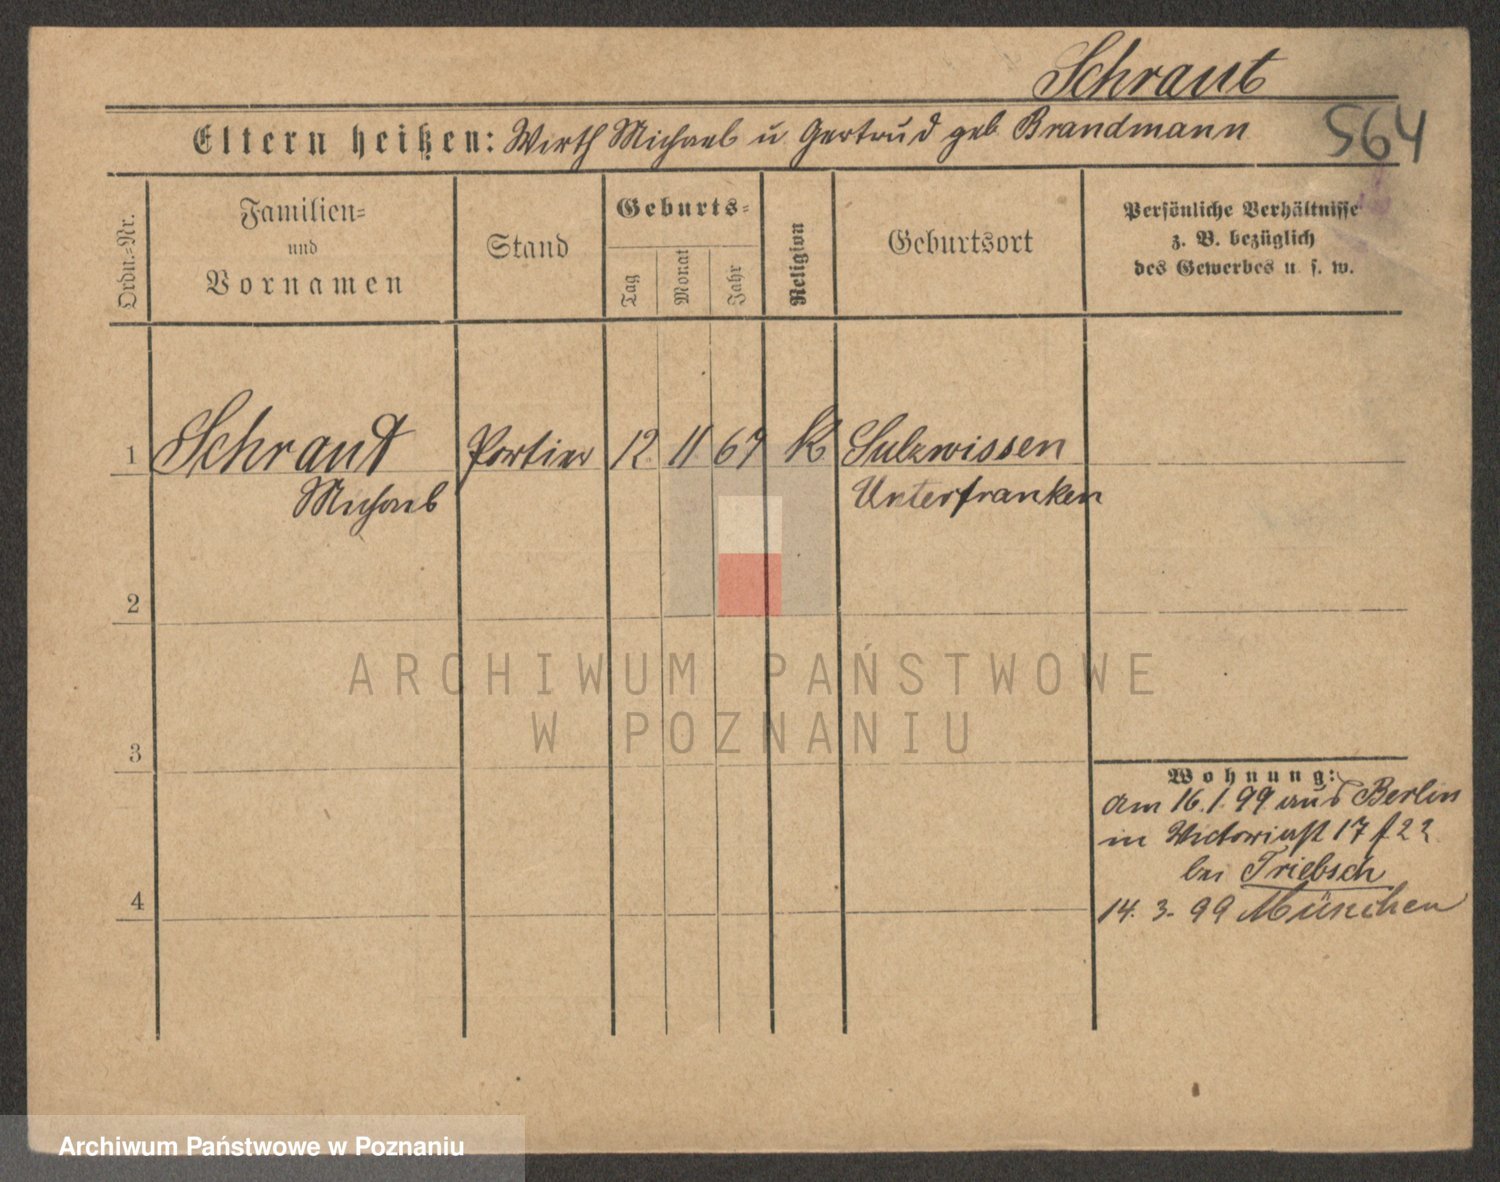 Schraut
Eltern heißen: Wirth Michael u Gertrud geb Brandmann
564
Ordn.-Nr.
Familien-
und
Vornamen
Stand
Geburts-
Tag
Monat
Jahr
Religion
Geburtsort
Persönliche Verhältnisse
z. B. bezüglich
des Gewerbes u. s. w.
1 Schraut Portier 12 11 69 K Sulzwissen
Michael Unterfranken
2
ARCHIWUM PAŃSTWOWE
W POZNANIU
3
Wohnung:
am 16.1.99 aus Berlin
in Victoriast 17 f 22
bei Triebsch
4
14. 3. 99 München
Archiwum Państwowe w Poznaniu